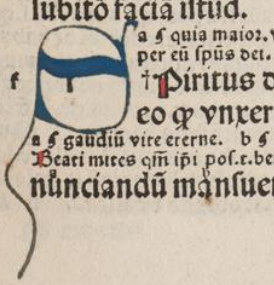 lubitō faciā iſtud.
a ꝯ quia maior.
per eū ſpūs dei.
r †Piritus d
eo ꝙ vnxer
a ꝯ gaudiū vite eterne. b ꝯ
Beati mites qm̄ ip̄i poſ.t.be
nūnciandū mānſuet